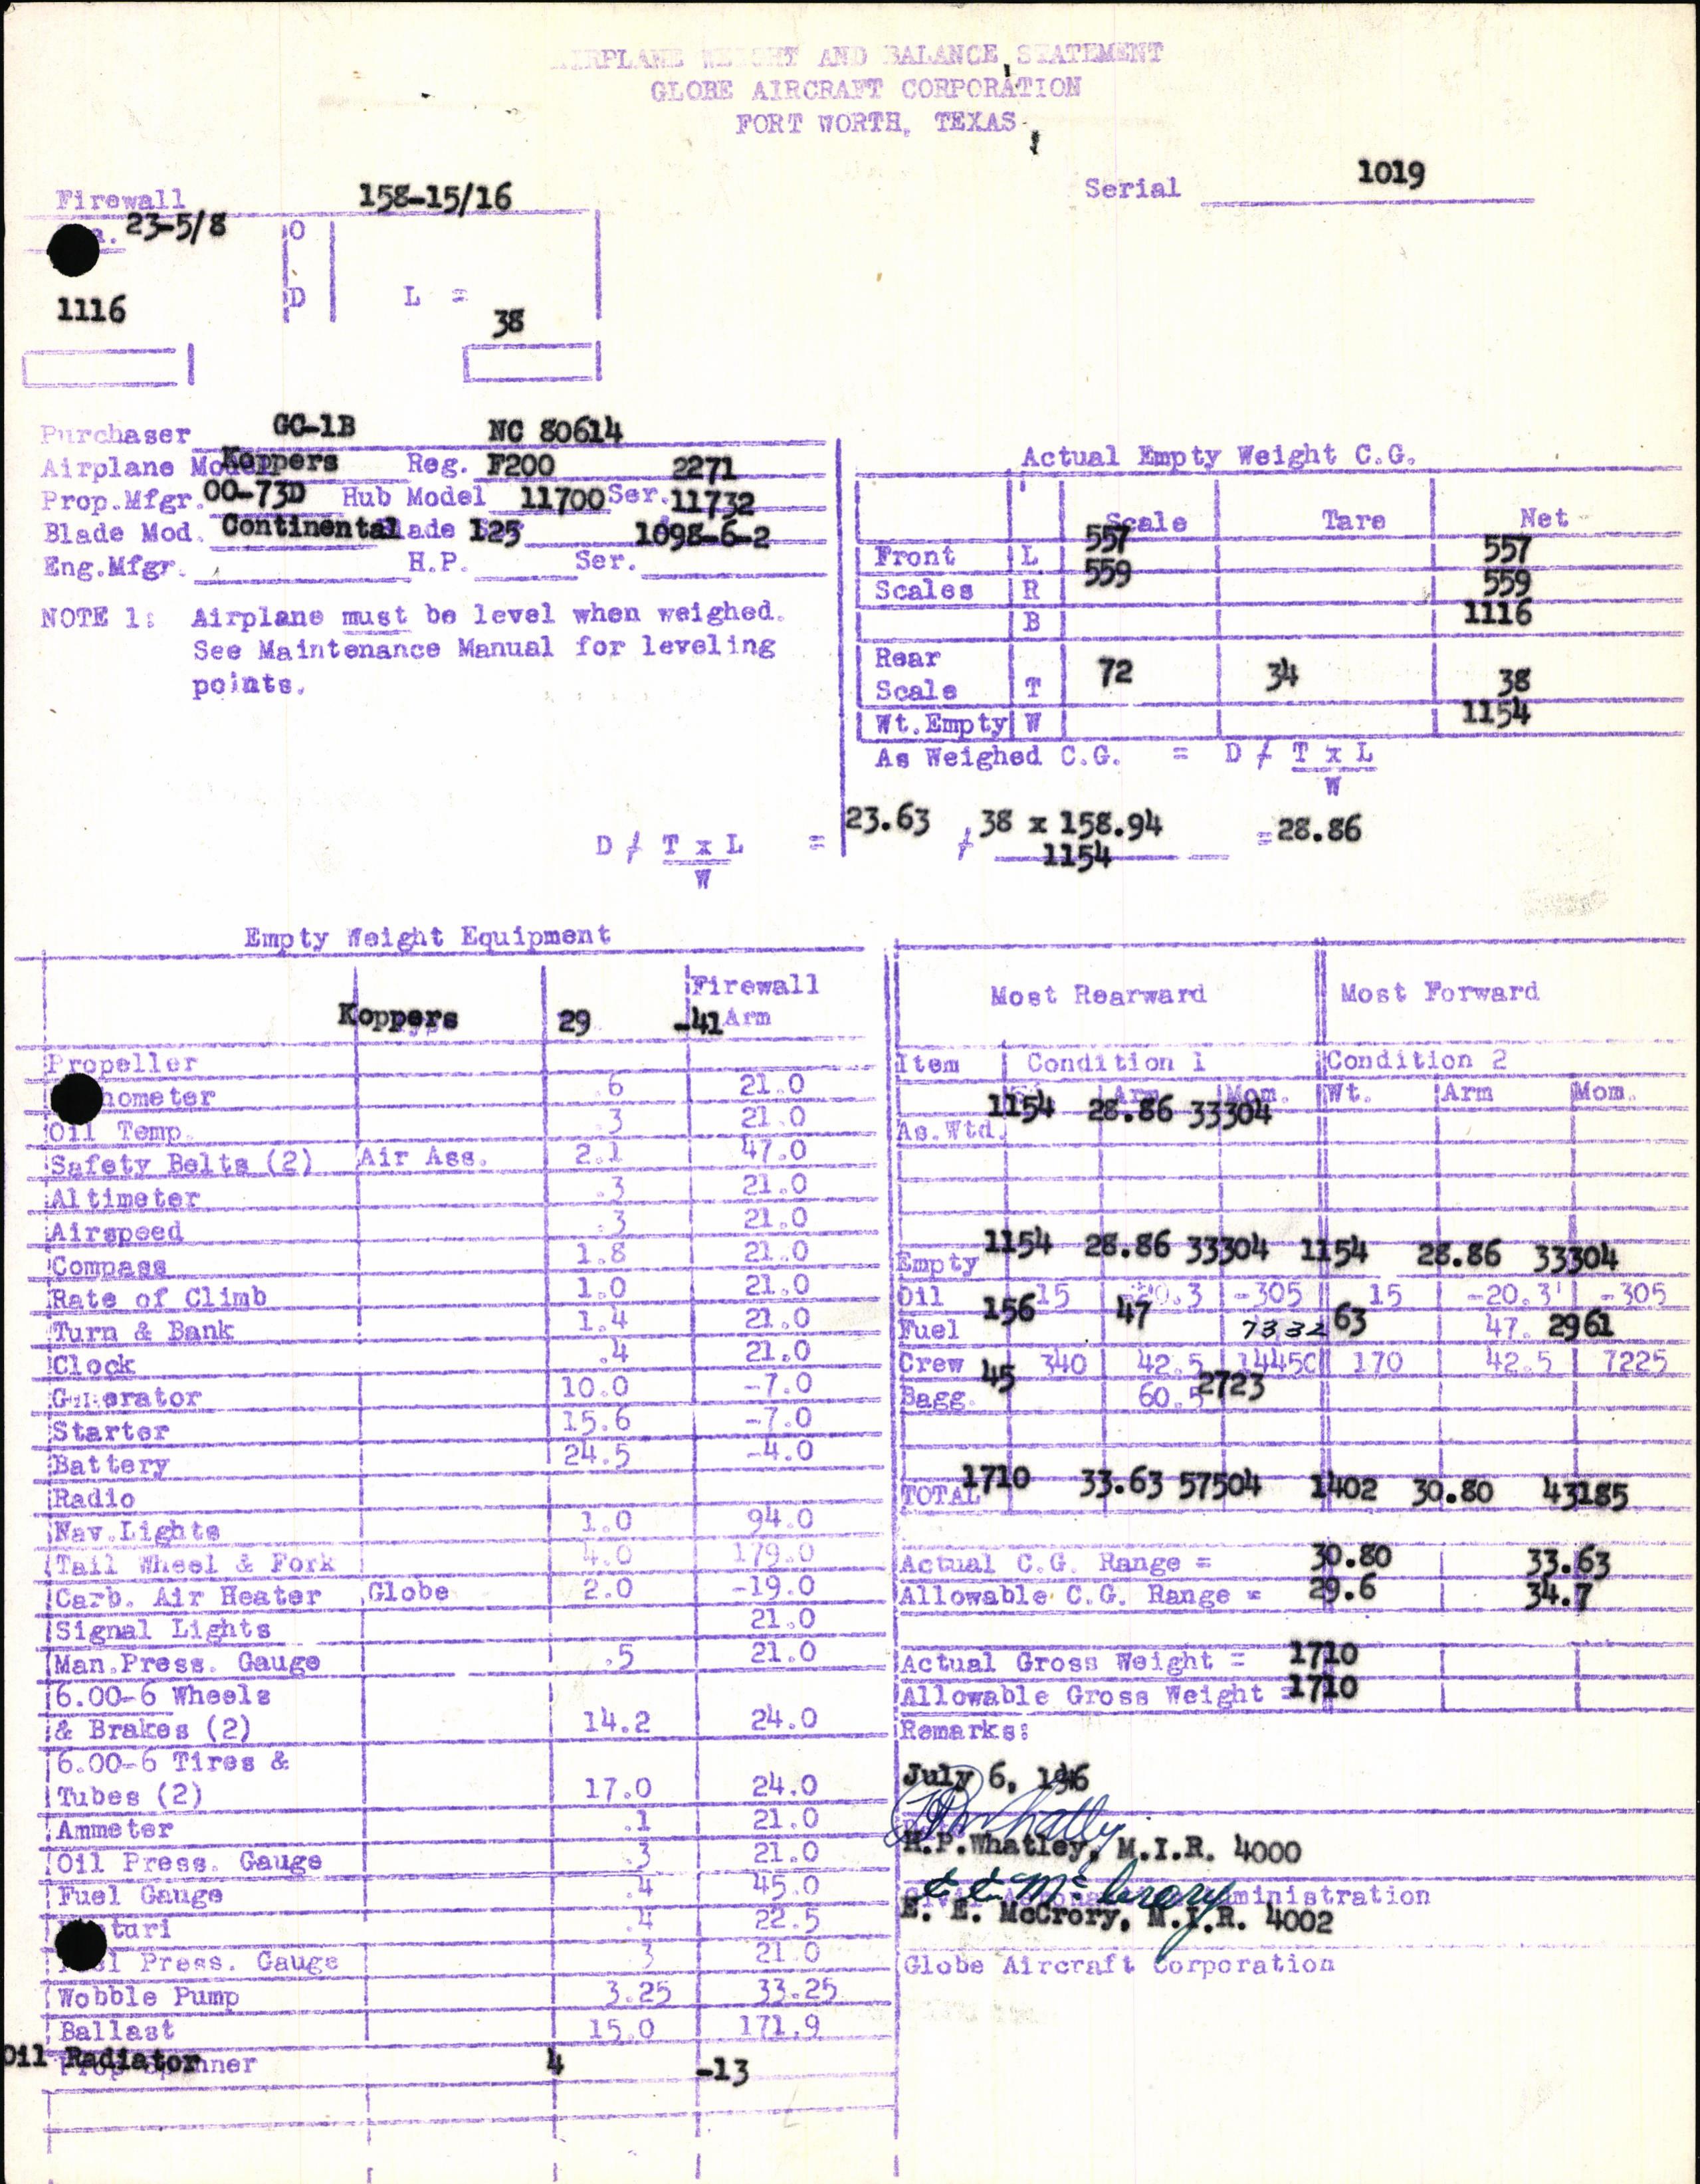 AIRPLANE WEIGHT AND BALANCE STATEMENT
GLOBE AIRCRAFT CORPORATION
FORT WORTH, TEXAS
Serial 1019
Firewall 158-15/16
23-5/8 O
D L =
1116
38
Purchaser GC-1B NC 80614
Airplane Model Koppers Reg. F200 2271
Prop.Mfgr. 00-73D Hub Model 11700 Ser. 11732
Blade Mod. Continental Blade 125 1098-6-2
Eng.Mfgr. H.P. Ser.
NOTE 1: Airplane must be level when weighed.
See Maintenance Manual for leveling
points.
Actual Empty Weight C.G.
Scale Tare Net
Front L 557 557
Scales R 559 559
B 1116
Rear
Scale T 72 34 38
Wt.Empty W 1154
As Weighed C.G. = D ⁄ T x L
W
D ⁄ T x L = 23.63 ⁄ 38 x 158.94 = 28.86
W 1154
Empty Weight Equipment
Firewall
Koppers 29 -41 Arm
Propeller
hometer .6 21.0
Oil Temp. .3 21.0
Safety Belts (2) Air Ass. 2.1 47.0
Altimeter .3 21.0
Airspeed .3 21.0
Compass 1.8 21.0
Rate of Climb 1.0 21.0
Turn & Bank 1.4 21.0
Clock .4 21.0
Generator 10.0 -7.0
Starter 15.6 -7.0
Battery 24.5 -4.0
Radio
Nav.Lights 1.0 94.0
Tail Wheel & Fork 4.0 179.0
Carb. Air Heater Globe 2.0 -19.0
Signal Lights 21.0
Man.Press. Gauge .5 21.0
6.00-6 Wheels
& Brakes (2) 14.2 24.0
6.00-6 Tires &
Tubes (2) 17.0 24.0
Ammeter .1 21.0
Oil Press. Gauge .3 21.0
Fuel Gauge .4 45.0
turi .4 22.5
l Press. Gauge .3 21.0
Wobble Pump 3.25 33.25
Ballast 15.0 171.9
Oil Radiator 4 -13
Most Rearward Most Forward
Item Condition 1 Condition 2
Arm Mom. Wt. Arm Mom.
As.Wtd. 1154 28.86 33304
Empty 1154 28.86 33304 1154 28.86 33304
Oil 15 -20.3 -305 15 -20.3 -305
Fuel 156 47 7332 63 47. 2961
Crew 340 42.5 14450 170 42.5 7225
Bagg. 45 60.5 2723
TOTAL 1710 33.63 57504 1402 30.80 43185
Actual C.G. Range = 30.80 33.63
Allowable C.G. Range = 29.6 34.7
Actual Gross Weight = 1710
Allowable Gross Weight = 1710
Remarks:
July 6, 1946
H.P.Whatley, M.I.R. 4000
E. E. McCrory, M.I.R. 4002
Globe Aircraft Corporation